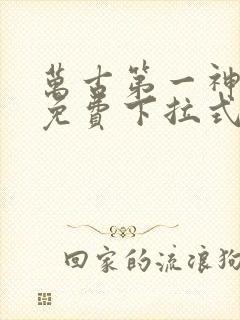 萬古第一神
免費下拉式
回家的流浪狗